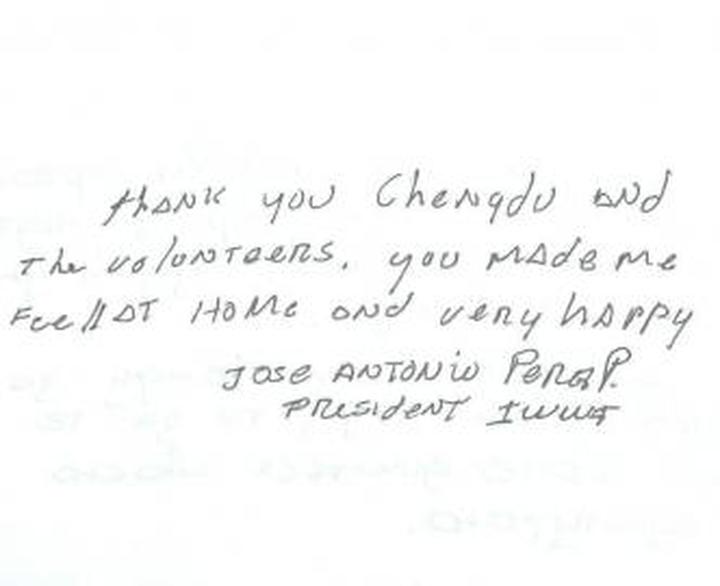 thank you Chengdu and
The volunteers. you made me
Feell AT HOMe and very happy
JOSE ANTONIO PEREZ P.
PRESIDENT IWWF